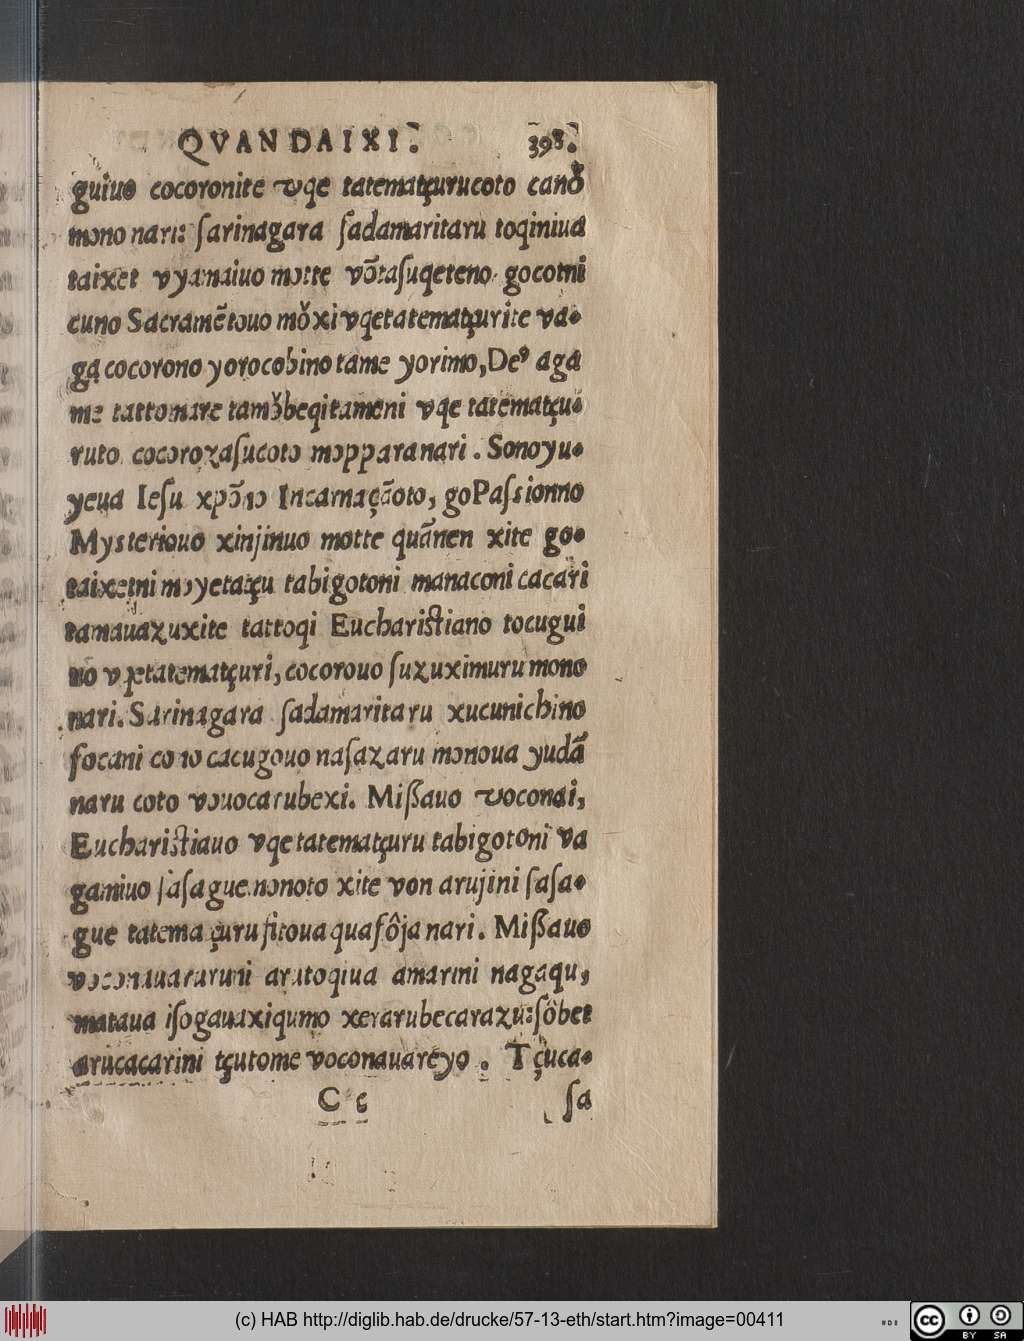 QVANDAIXI. 398.
guiuo cocoronite vqe tatematçurucoto canǒ
mono nari: ſarinagara ſadamaritaru toqiniua
taixet vyamaiuo motte võtaſuqeteno gocotni
cuno Sacramẽtouo mǒxi vqetatematçurite va-
ga cocorono yorocobino tame yorimo, De⁹ aga
me tattomare tamǒbeqitameni vqe tatematçu-
ruto cocorozaſucoto mopparanari. Sonoyu-
yeua Ieſu xpõno Incarnaçãoto, goPaſsionno
Mysteriouo xinjinuo motte quãnen xite go-
taixetni moyetatçu tabigotoni manaconi cacari
tamauazuxite tattoqi Euchariſtiano tocugui
uo vqetatematçuri, cocorouo ſuzuximuru mono
nari. Sarinagara ſadamaritaru xucunichino
focani cono cacugouo naſazaru monoua yudã
naru coto vouocarubexi. Miſſauo voconai,
Euchariſtiauo vqe tatematçuru tabigotoni va
gamiuo ſaſague.nonoto xite von arujini ſaſa-
gue tatematçuru fitoua quafôja nari. Miſſauo
voconauararuni aratoqiua amarini nagaqu,
mataua iſogauaxiqumo xerarubecarazu: ſôbet
arucacarini tçutome voconauareyo. Tçuca-
Cc ſa
(c) HAB http://diglib.hab.de/drucke/57-13-eth/start.htm?image=00411
cc BY SA